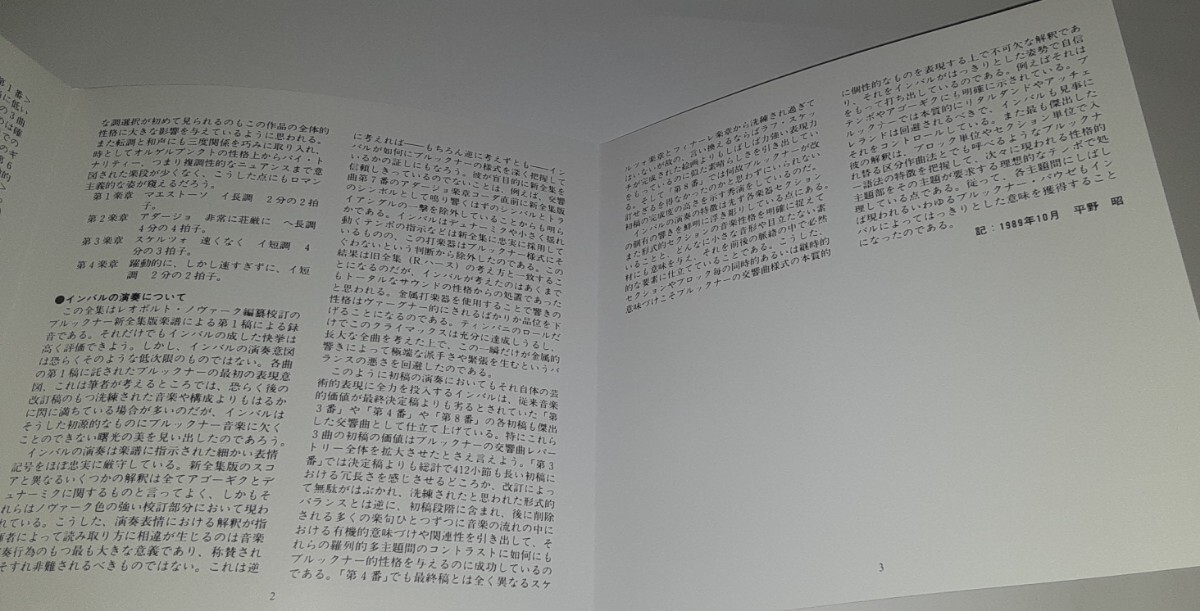 第1番>
な調選択が初めて見られるのもこの作品の全体的
性格に大きな影響を与えているように思われる。
また転調と和声にも三度関係を巧みに取り入れ、
時としてオルゲルプンクトの性格上からバイ・ト
ナリティー、つまり複調性的なニュアンスまで意
図された楽段が少なくなく、こうした点にもロマン
主義的な姿が窺えるだろう。
第1楽章 マエストーソ イ長調 2分の2拍
子。
第2楽章 アダージョ 非常に荘厳に ヘ長調
4分の4拍子。
第3楽章 スケルツォ 速くなく イ短調 4
分の3拍子。
第4楽章 躍動的に、しかし速すぎずに、イ短
調 2分の2拍子。
●インバルの演奏について
この全集はレオポルト・ノヴァーク編纂校訂の
ブルックナー新全集版楽譜による第1稿による録
音である。それだけでもインバルの成した快挙は
高く評価できよう。しかし、インバルの演奏意図
は恐らくそのような低次限のものではない。各曲
の第1稿に託されたブルックナーの最初の表現意
図、これは筆者が考えるところでは、恐らく後の
改訂稿のもつ洗練された音楽や構成よりもはるか
に閃に満ちている場合が多いのだが、インバルは
そうした初源的なものにブルックナー音楽に欠く
ことのできない曙光の美を見い出したのであろう。
インバルの演奏は楽譜に指示された細かい表情
記号をほぼ忠実に厳守している。新全集版のスコ
アと異なるいくつかの解釈は全てアゴーギクとデ
ュナーミクに関するものと言ってよく、しかもそ
れらはノヴァーク色の強い校訂部分において現わ
れている。こうした、演奏表情における解釈が指
揮者によって読み取り方に相違が生じるのは音楽
演奏行為のもつ最も大きな意義であり、称賛され
こそすれ非難されるべきものではない。これは逆
2
に考えれば――もちろん逆に考えずとも――イン
バルが如何にブルックナーの様式を深く把握して
いるかの証しにもなろう。彼が盲目的に新全集を
信頼しきっているのでないことは、例えば、交響
曲第7番のアダージョ楽章コーダ直前に新全集版
のシンボルとして鳴り響くはずのシンバルとトラ
イアングルの一撃を除外していることからも明ら
かである。インバルはデュナーミクや小さく揺れ
動くテンポの指示などは新全集に忠実に採用して
いるものの、この打楽器はブルックナー様式にそ
ぐわないという判断から除外したのである。この
結果は旧全集(R.ハース)の考え方と一致するこ
とになるのだが、インバルが考えたのはあくまで
もトータルなサウンドの性格からの処置であった
と思われる。金属打楽器を使用することで響きの
性格はヴァーグナー的にされるばかりか品位を下
げることになるのである。ティンパニのロールだ
けでこのクライマックスは充分に達成しうるし、
長大な全曲を考えた上で、この一瞬だけが金属的
響きによって極端な派手さや緊張を生むというバ
ランスの悪さを回避したのである。
このように初稿の演奏においてもそれ自体の芸
術的表現に全力を投入するインバルは、従来音楽
的価値が最終決定稿よりも劣るとされていた「第
3番」や「第4番」や「第8番」の各初稿も傑出
した交響曲として仕立て上げている。特にこれら
3曲の初稿の価値はブルックナーの交響曲レパー
トリー全体を拡大させたとさえ言えよう。「第3
番」では決定稿よりも総計で412小節も長い初稿に
おける冗長さを感じさせるどころか、改訂によっ
て無駄がはぶかれ、洗練されたと思われた形式的
バランスとは逆に、初稿段階に含まれ、後に削除
される多くの楽句ひとつずつに音楽の流れの中に
おける有機的意味づけや関連性を引き出して、そ
れらの羅列的多主題間のコントラストに如何にも
ブルックナー的性格を与えるのに成功しているの
である。「第4番」でも最終稿とは全く異なるスケ
ルツォ楽章とフィナーレ楽章から洗練され過ぎて
はいないが故の、言い換えるならばラフ・スケッ
チが完成された絵画よりもしばしば力強い表現力
をもっているのに似た素晴らしさを引き出してい
る。そして「第8番」では何故ブルックナーが改
訂せざるを得なかったのかと思わずにいられない
初稿の完成度の高さを示す秀演をしているのだ。
インバルの演奏の特徴は先ず各楽器セクション
の個有の響きを鮮明に浮き彫りしている点にある。
また形式的セクションの音楽性格を明確に捉えて
いることと、どんなに小さな音形や目立たない素
材にも意味を与え、それを前後の脈絡の中で必然
的な要素に仕立てていることである。こうした、
セクションやブロック毎の同時的あるいは継時的
意味づけこそブルックナーの交響曲様式の本質的
に個性的なものを表現する上で不可欠な解釈であ
り、それをインバルがはっきりとした姿勢で自信
をもって打ち出しているのである。例えばそれは
テンポやアゴーギクにも明確に示されている。ブ
ルックナーでは本質的にリタルダンドやアッチェ
レランドは回避されるべきで、インバルも見事に
それをコントロールしている。また最も傑出した
彼の解釈は、ブロック単位やセクション単位で入
れ替る区分作曲法とでも呼べるようなブルックナ
ー語法の特徴を把握して、次々に現われる性格的
主題部をその主題が要求する理想的なテンポで処
理している点である。従って、各主題間にしばし
ば現われるいわゆるブルックナー・パウゼもイン
バルによってはっきりとした意味を獲得すること
になったのである。
記:1989年10月 平野 昭
3